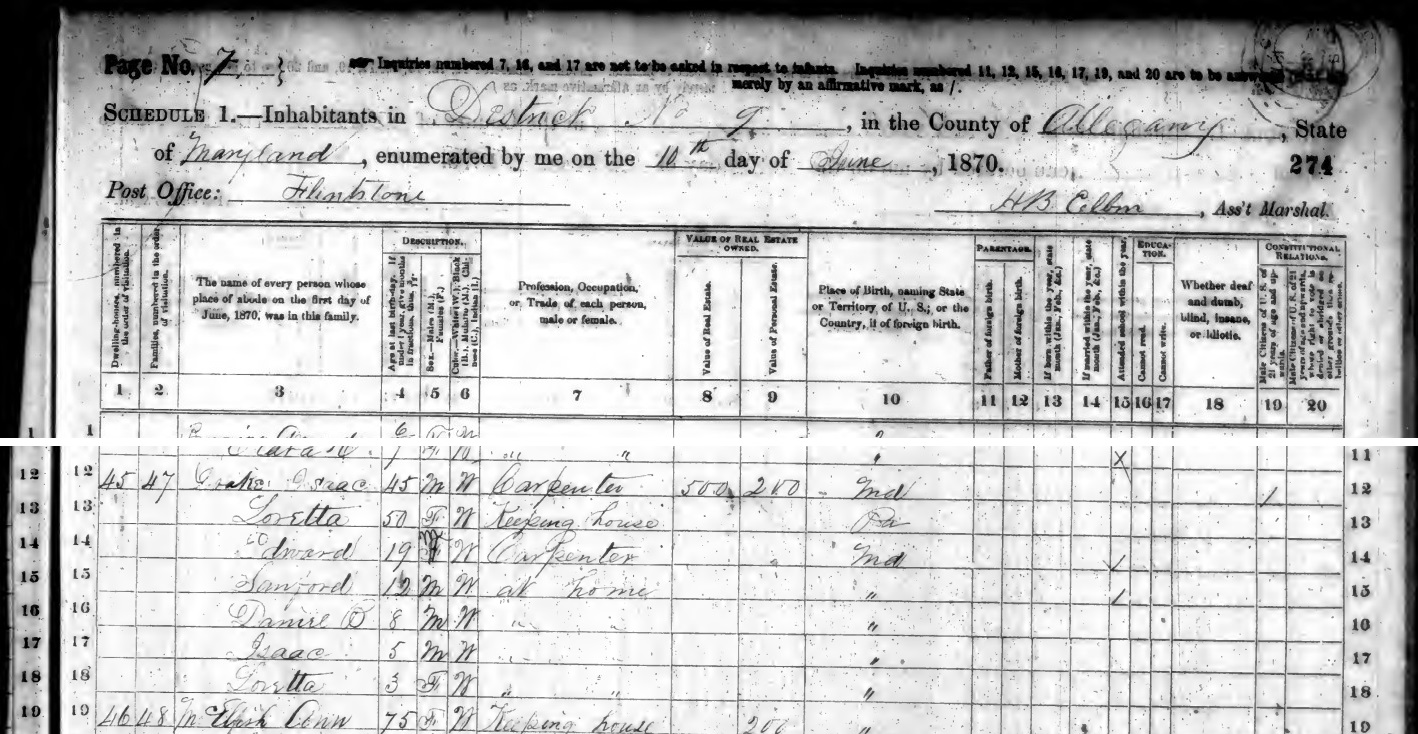 Page No. 7
Inquiries numbered 7, 16, and 17 are not to be asked in respect to infants. Inquiries numbered 11, 12, 15, 16, 17, 19, and 20 are to be answered
merely by an affirmative mark, as /.
SCHEDULE 1.—Inhabitants in District No 9, in the County of Allegany, State
of Maryland, enumerated by me on the 10th day of June, 1870. 274
Post Office: Flintstone
HB, Ass't Marshal.
Dwelling-houses, numbered in the order of visitation.
Families, numbered in the order of visitation.
The name of every person whose place of abode on the first day of June, 1870, was in this family.
DESCRIPTION.
Age at last birth-day. If under 1 year, give months in fractions, thus,
Sex.—Males (M.), Females (F.)
Color.—White (W.), Black (B.), Mulatto (M.), Chinese (C.), Indian (I.)
Profession, Occupation, or Trade of each person, male or female.
VALUE OF REAL ESTATE OWNED.
Value of Real Estate.
Value of Personal Estate.
Place of Birth, naming State or Territory of U. S.; or the Country, if of foreign birth.
PARENTAGE.
Father of foreign birth.
Mother of foreign birth.
If born within the year, state month (Jan., Feb., &c.)
If married within the year, state month (Jan., Feb., &c.)
Attended school within the year.
EDUCATION.
Cannot read.
Cannot write.
Whether deaf and dumb, blind, insane, or idiotic.
CONSTITUTIONAL RELATIONS.
Male Citizens of U. S. of 21 years of age and upwards.
Male Citizens of U. S. of 21 years of age and upwards, whose right to vote is denied or abridged on other grounds than rebellion or other crime.
1 2 3 4 5 6 7 8 9 10 11 12 13 14 15 16 17 18 19 20
1 1
Clara 7 F W " " " X 11
12 12 45 47 Isaac 45 M W Carpenter 500 200 Md / 12
13 13 Loretta 50 F W Keeping house Pa 13
14 14 Edward 19 M W Carpenter Md / 14
15 15 Sanford 12 M W at home " / 15
16 16 Daniel O 8 M W " " " 16
17 17 Isaac 5 M W " " 17
18 18 Loretta 3 F W " " " 18
19 19 46 48 Ann 75 F W Keeping house 200 " 19